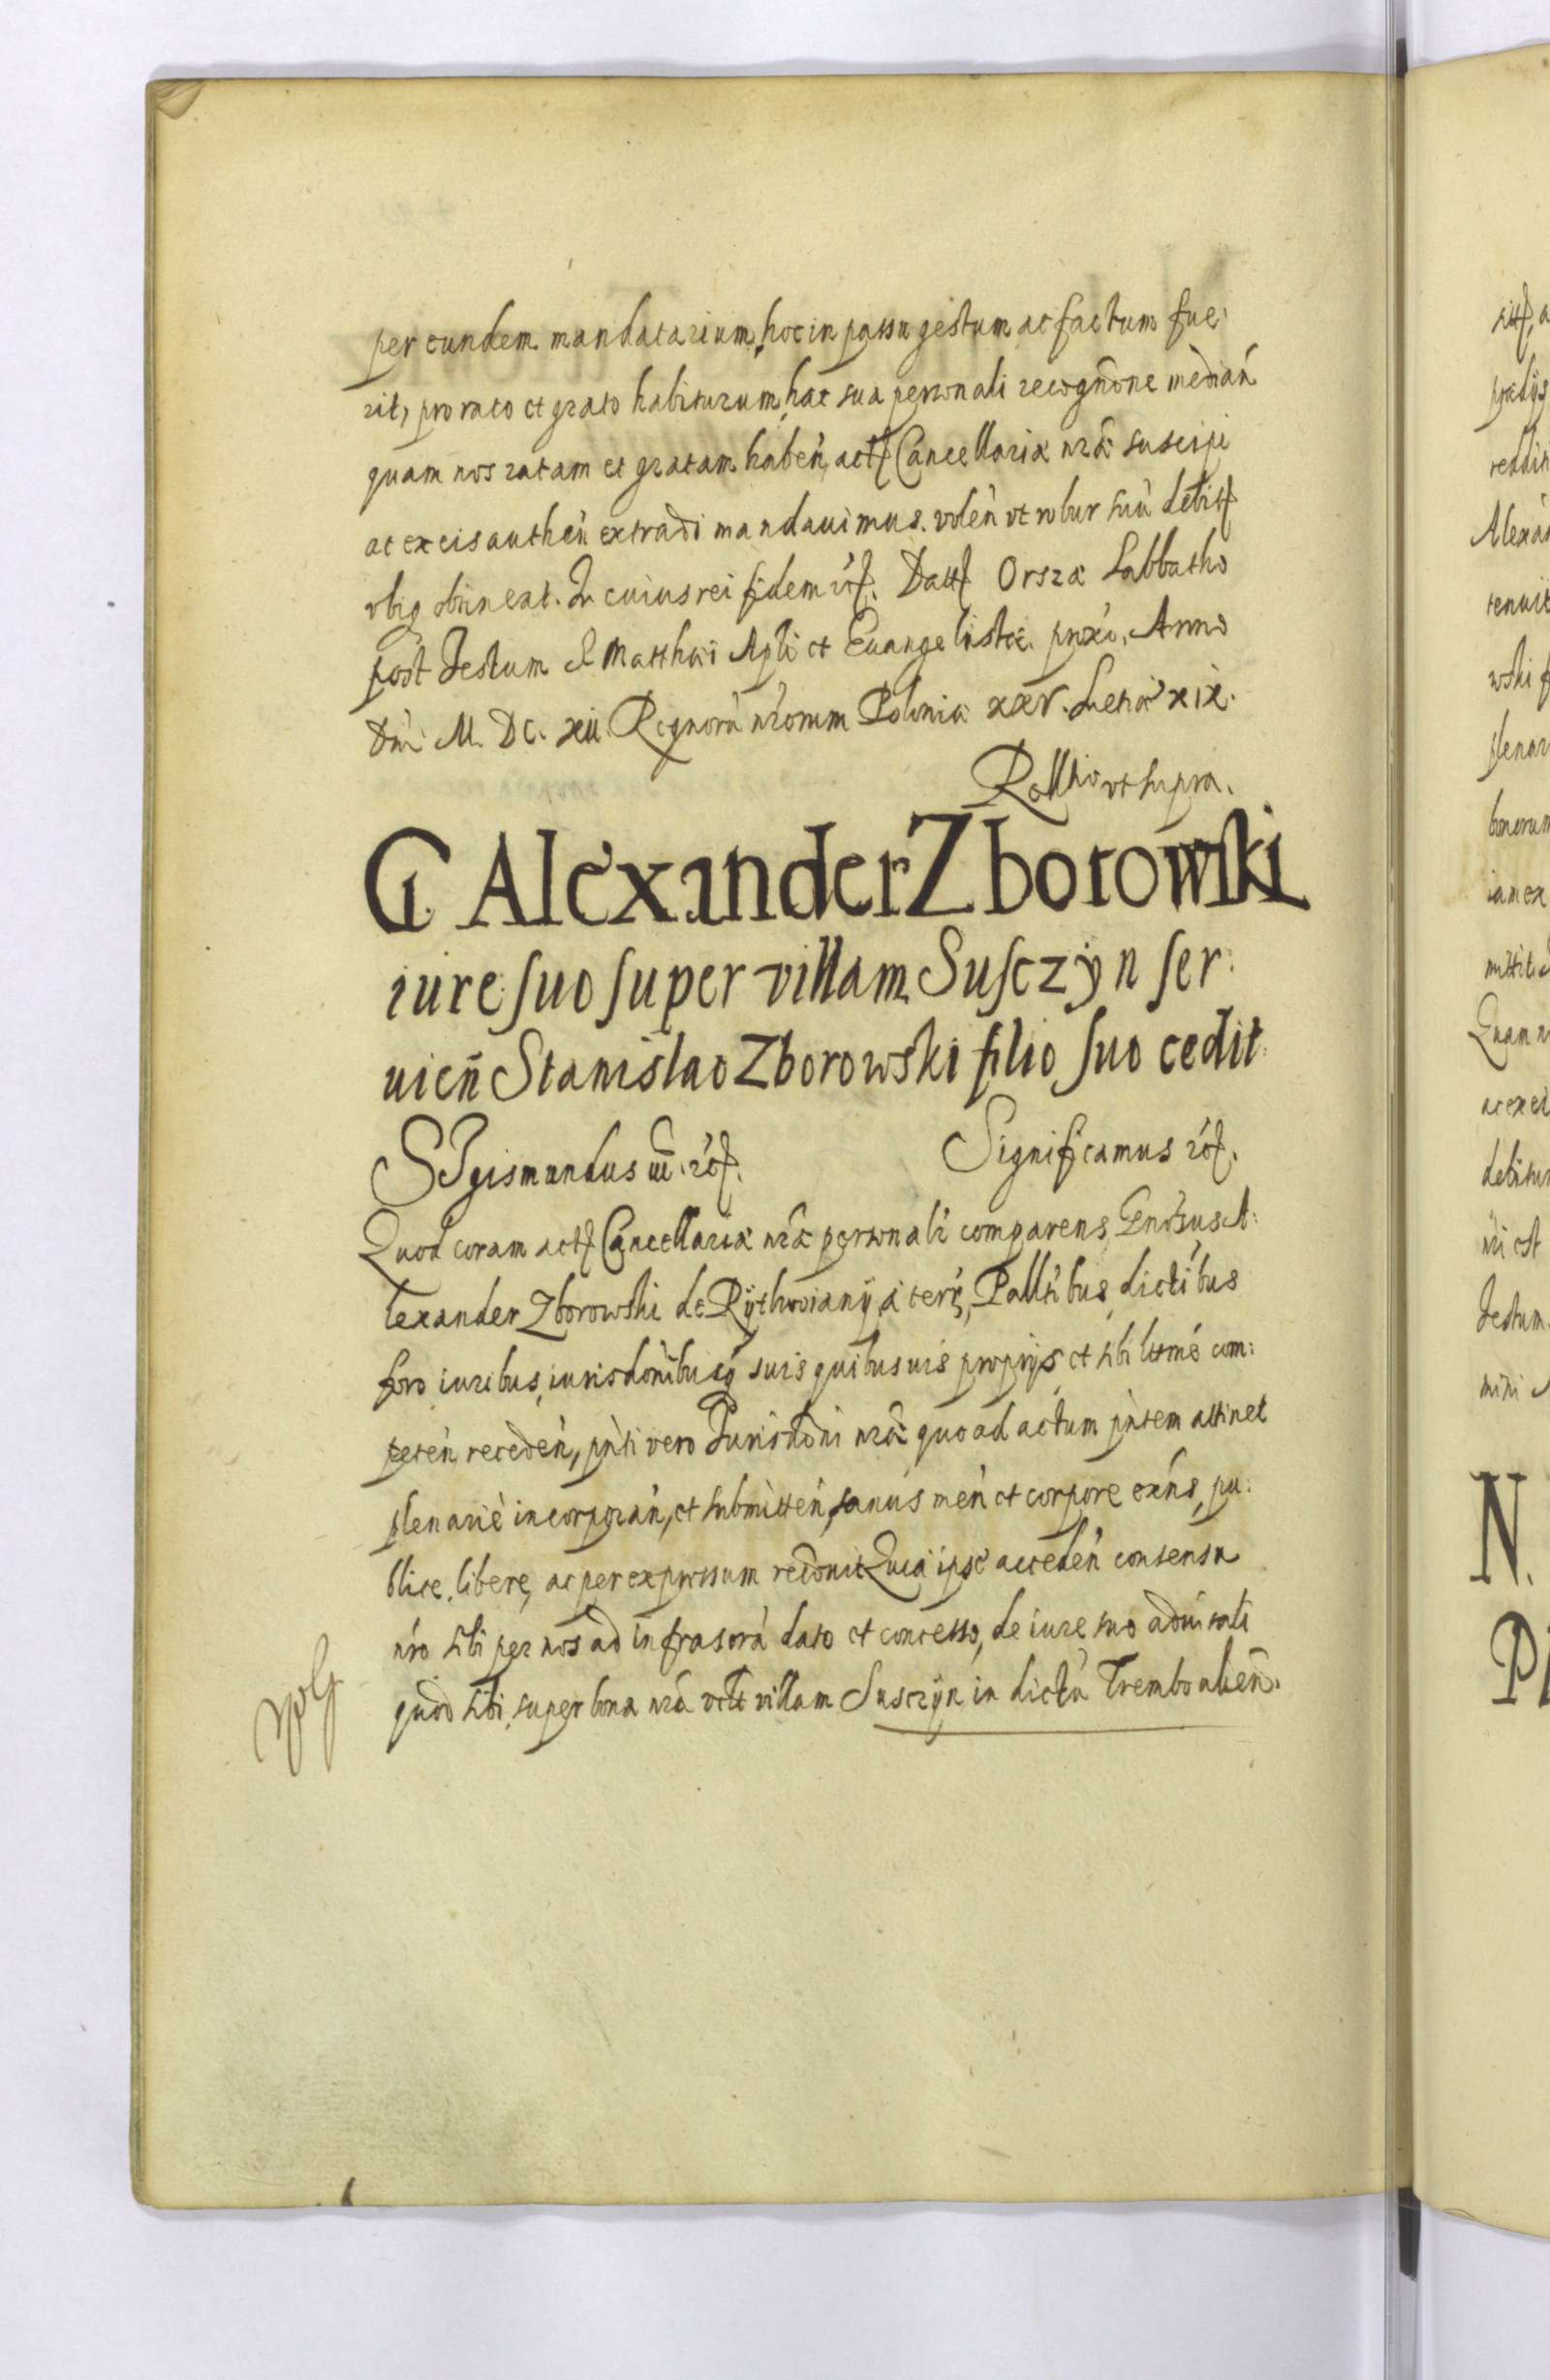 per eundem mandatarium, hoc in passu gestum ac factum fue:
rit, pro rato et grato habiturum, hac sua personali recogñone mediañ
quam nos ratam et gratam habeñ, actt Cancellariæ nr̃æ suscipi
ac ex eis autheñ extradi mandauimus. voleñ vt robur suũ debitt
vbiq obtineat. In cuius rei fidem etc. Datt Orszæ Sabbatho
post Festum S. Matthæi Apli et Euangelistæ. proxo. Anno
Dñi M. DC. XII Regnorũ nr̃orum Poloniæ XXV. Suetiæ XIX.
Rellio vt supra.
G. Alexander Zborowski
iure suo super villam Susczÿn ser:
uieñ Stanislao Zborowski filio suo cedit.
SIgismundus III. etc.
Significamus etc.
Quod coram actt Cancellariæ nr̃æ personalr̃ comparens Gnosus A:
lexander Zborowski de Rÿthwianÿ, a terr, Pallibus, dictibus
foro iuribus, iurisdonibusq suis quibusuis proprÿs, et sibi lttme com:
peteñ recedeñ, pñti vero Iurisdoni nr̃æ quo ad actum pñtem attinet
plenariè incorporañ, et submitteñ, sanus meñ et corpore exñs, pu:
blice, libere, ac per expressum recõuit Quia ipse accedeñ consensu
nr̃o sibi per nos ad infrascra dato et concesso, de iure suo aduitali
quod sibi, super bona nr̃a vtt villam Susczÿn in dictũ Trembowlieñ.